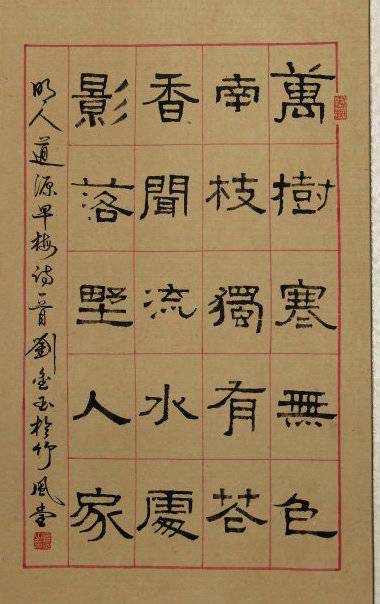 萬樹寒無色
南枝獨有花
香聞流水處
影落野人家
明人道源早梅詩一首劉金玉於竹風堂